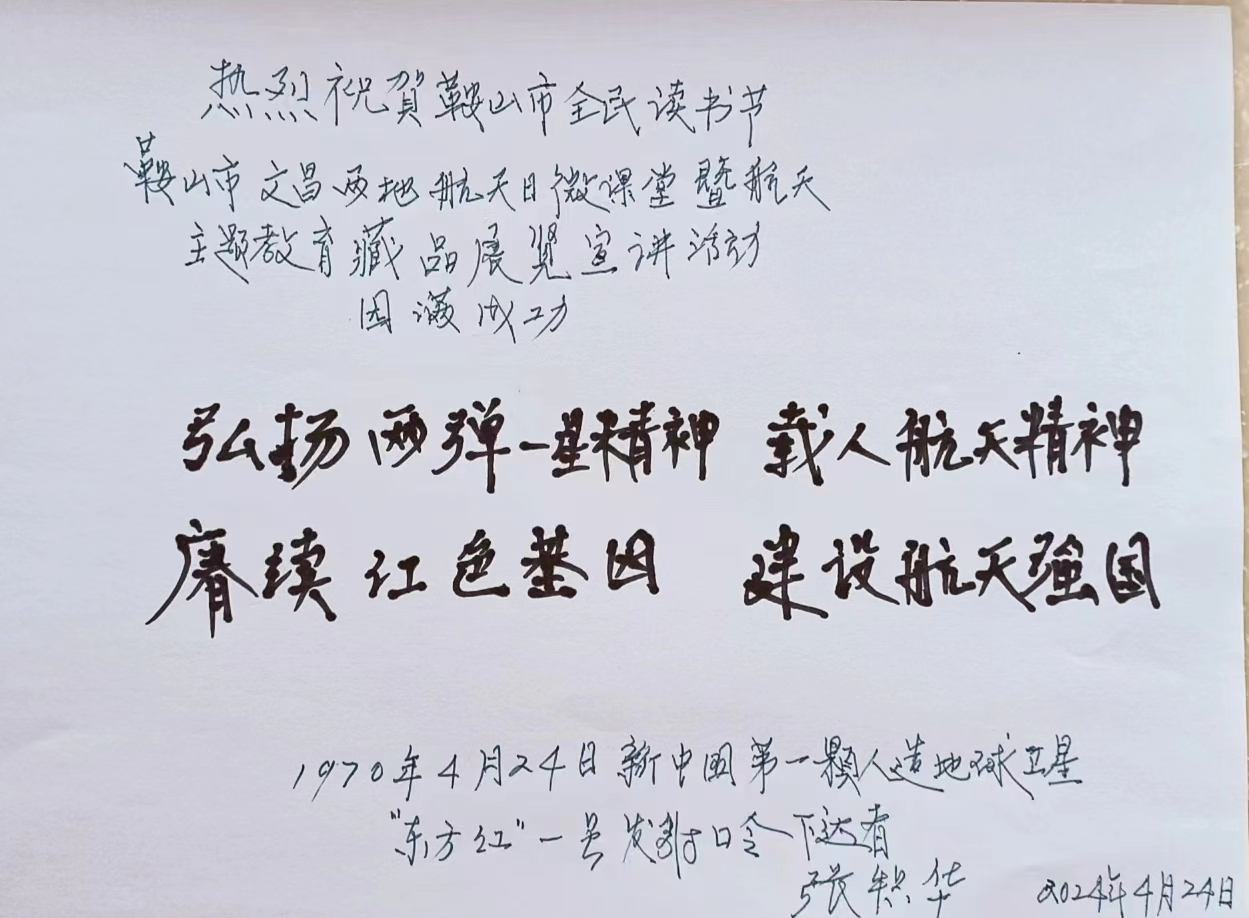 热烈祝贺鞍山市全民读书节
鞍山市文昌两地航天日微课堂暨航天
主题教育藏品展览宣讲活动
圆满成功
弘扬两弹一星精神 载人航天精神
赓续红色基因 建设航天强国
1970年4月24日新中国第一颗人造地球卫星
"东方红"一号发射口令下达者
张积华
2024年4月24日